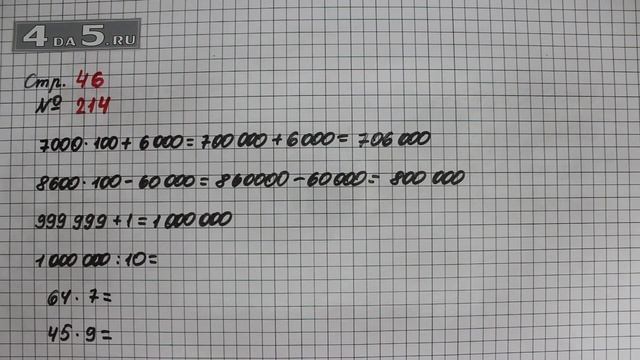 4DA5.RU
Стр. 46
№ 214
7000·100+6000=700 000+6000=706 000
8600·100-60 000=860000-60 000=800 000
999 999+1=1 000 000
1 000 000:10=
64·7=
45·9=